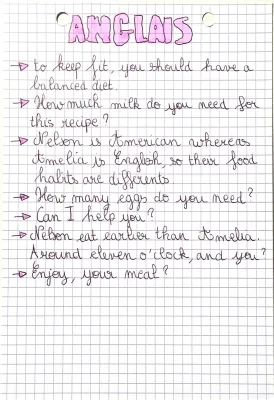 ANGLAIS
to keep fit, you should have a
balanced diet.
How much milk do you need for
this recipe?
Nelson is American whereas
Amelia is English, so their food
habits are differents
How many eggs do you need?
Can I help you?
Nelson eat earlier than Amelia.
Around eleven o'clock, and you?
Enjoy, your meal?